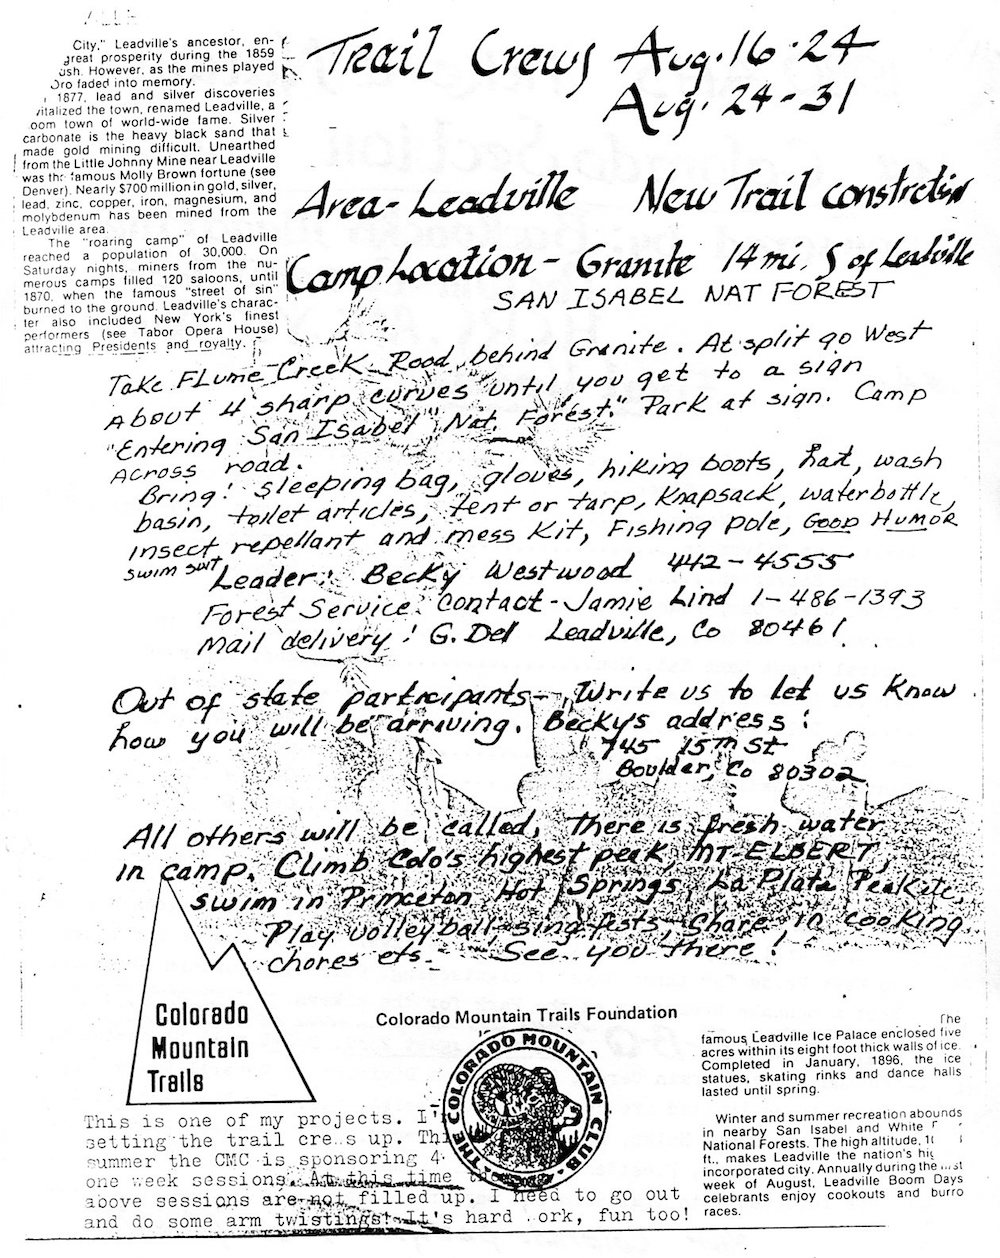 City," Leadville's ancestor, en-
great prosperity during the 1859
ush. However, as the mines played
Oro faded into memory.
1877, lead and silver discoveries
vitalized the town, renamed Leadville, a
oom town of world-wide fame. Silver
carbonate is the heavy black sand that
made gold mining difficult. Unearthed
from the Little Johnny Mine near Leadville
was the famous Molly Brown fortune (see
Denver). Nearly $700 million in gold, silver,
lead, zinc, copper, iron, magnesium, and
molybdenum has been mined from the
Leadville area.
The "roaring camp" of Leadville
reached a population of 30,000. On
Saturday nights, miners from the nu-
merous camps filled 120 saloons, until
1870, when the famous "street of sin"
burned to the ground. Leadville's charac-
ter also included New York's finest
performers (see Tabor Opera House)
attracting Presidents and royalty.
Trail Crews Aug. 16 - 24
Aug. 24 - 31
Area - Leadville New Trail constrction
Camp Location - Granite 14 mi. S of Leadville
SAN ISABEL NAT FOREST
Take Flume Creek Road behind Granite. At split go West
About 4 sharp curves until you get to a sign
"Entering San Isabel Nat. Forest." Park at sign. Camp
Across road.
Bring: sleeping bag, gloves, hiking boots, hat, wash
basin, toilet articles, tent or tarp, knapsack, waterbottle,
insect repellant and mess kit, Fishing pole, Good Humor
swim suit
Leader: Becky Westwood 442-4555
Forest Service Contact - Jamie Lind 1-486-1393
Mail delivery: G. Del Leadville, Co 80461
Out of state participants - Write us to let us know
how you will be arriving. Becky's address:
745 15th St
Boulder, Co 80302
All others will be called, There is fresh water
in camp. Climb Colo's highest peak, MT-ELBERT,
swim in Princeton Hot Springs, La Plata Peak etc,
Play volleyball-sing fests, Share in cooking
chores ets. - See you there!
Colorado
Mountain
Trails
Colorado Mountain Trails Foundation
THE COLORADO MOUNTAIN CLUB
The
famous Leadville Ice Palace enclosed five
acres within its eight foot thick walls of ice.
Completed in January, 1896, the ice
statues, skating rinks and dance halls
lasted until spring.
Winter and summer recreation abounds
in nearby San Isabel and White
National Forests. The high altitude,
ft., makes Leadville the nation's
incorporated city. Annually during the
week of August, Leadville Boom Days
celebrants enjoy cookouts and burro
races.
This is one of my projects. I'
setting the trail cre..s up. Thi
summer the CMC is sponsoring 4
one week sessions. At this time
above sessions are not filled up. I need to go out
and do some arm twistings! It's hard ork, fun too!